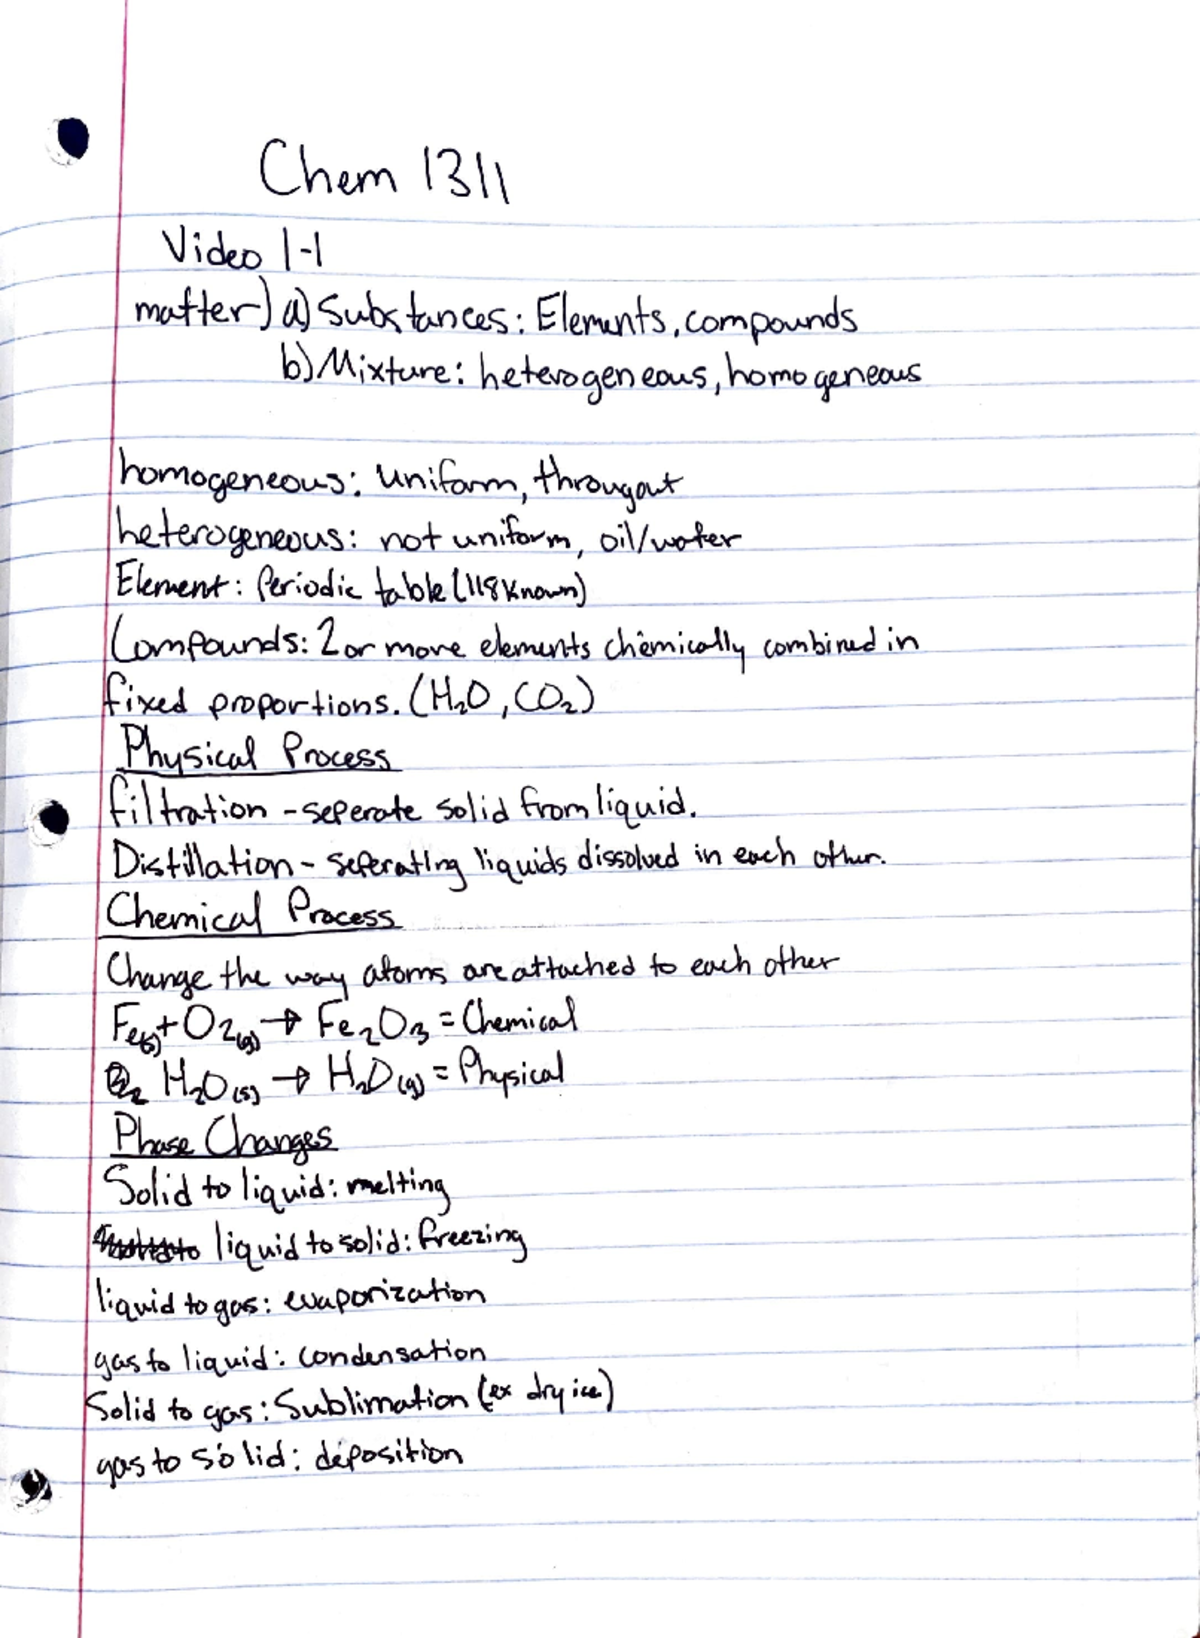 Chem 1311
Video 1-1
matter) a) Substances: Elements, compounds
b) Mixture: heterogeneous, homogeneous
homogeneous: uniform, througout
heterogeneous: not uniform, oil/water
Element: Periodic table (118 known)
Compounds: 2 or more elements chemically combined in
fixed proportions. (H₂O, CO₂)
Physical Process
filtration - seperate solid from liquid.
Distillation - seperating liquids dissolved in each other.
Chemical Process
Change the way atoms are attached to each other
Fe(s) + O2(g) → Fe₂O₃ = Chemical
H₂O(s) → H₂O(g) = Physical
Phase Changes
Solid to liquid: melting
liquid to solid: freezing
liquid to gas: evaporization
gas to liquid: condensation
Solid to gas: Sublimation (ex dry ice)
gas to solid: deposition